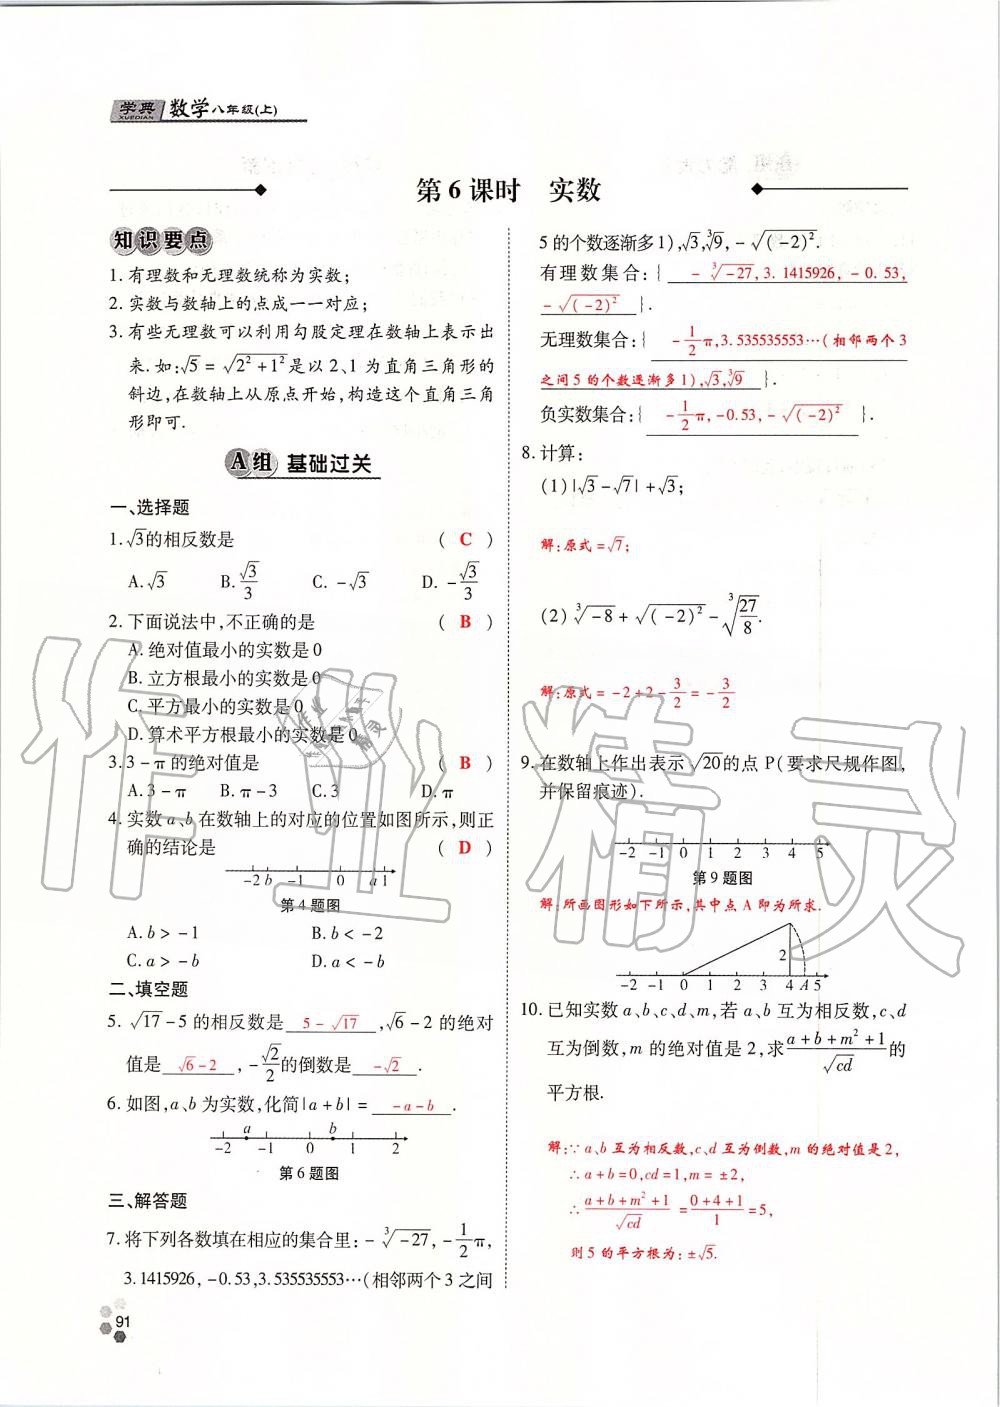 学典 XUEDIAN 数学八年级(上)
第6课时 实数
知识要点
1. 有理数和无理数统称为实数;
2. 实数与数轴上的点成一一对应;
3. 有些无理数可以利用勾股定理在数轴上表示出
来. 如:√5 = √(2²+1²)是以2、1为直角三角形的
斜边,在数轴上从原点开始,构造这个直角三角
形即可.
A组 基础过关
一、选择题
1. √3的相反数是 ( C )
A. √3 B. √3/3 C. -√3 D. -√3/3
2. 下面说法中,不正确的是 ( B )
A. 绝对值最小的实数是0
B. 立方根最小的实数是0
C. 平方最小的实数是0
D. 算术平方根最小的实数是0
3. 3-π的绝对值是 ( B )
A. 3-π B. π-3 C. 3 D. π
4. 实数a、b在数轴上的对应的位置如图所示,则正
确的结论是 ( D )
-2 b -1 0 a 1
第4题图
A. b>-1 B. b<-2
C. a>-b D. a<-b
二、填空题
5. √17-5的相反数是 5-√17 ,√6-2的绝对
值是 √6-2 , -√2/2的倒数是 -√2 .
6. 如图,a、b为实数,化简|a+b|= -a-b .
a b
-2 -1 0 1 2
第6题图
三、解答题
7. 将下列各数填在相应的集合里: -∛-27, -1/2π,
3.1415926, -0.53, 3.535535553…(相邻两个3之间
91
5的个数逐渐多1), √3, ∛9, -√(-2)².
有理数集合:{ -∛-27, 3.1415926, -0.53,
-√(-2)² }.
无理数集合:{ -1/2π, 3.535535553…(相邻两个3
之间5的个数逐渐多1), √3, ∛9 }.
负实数集合:{ -1/2π, -0.53, -√(-2)² }.
8. 计算:
(1)|√3-√7|+√3;
解:原式=√7;
(2)∛-8+√(-2)²-∛27/8.
解:原式=-2+2-3/2=-3/2
9. 在数轴上作出表示√20的点P(要求尺规作图,
并保留痕迹).
-2 -1 0 1 2 3 4 5
第9题图
解:所画图形如下所示,其中点A即为所求.
2
-2 -1 0 1 2 3 4 A 5
10. 已知实数a、b、c、d、m,若a、b互为相反数,c、d
互为倒数,m的绝对值是2,求(a+b+m²+1)/√cd的
平方根.
解:∵a、b互为相反数,c、d互为倒数,m的绝对值是2,
∴a+b=0,cd=1,m=±2,
∴(a+b+m²+1)/√cd=(0+4+1)/1=5,
则5的平方根为:±√5.
作业精灵